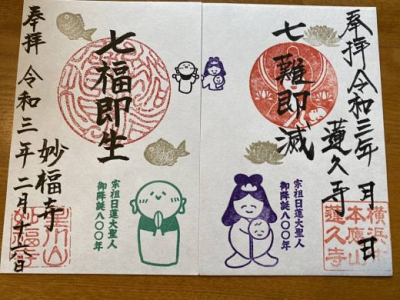 奉拝 令和三年 月 日
七難即滅
蓮久寺
宗祖日蓮大聖人
御降誕八〇〇年
横浜
本應山
蓮久寺
七福即生
奉拝 令和三年二月十六日
妙福寺
宗祖日蓮大聖人
御降誕八〇〇年
妙福寺